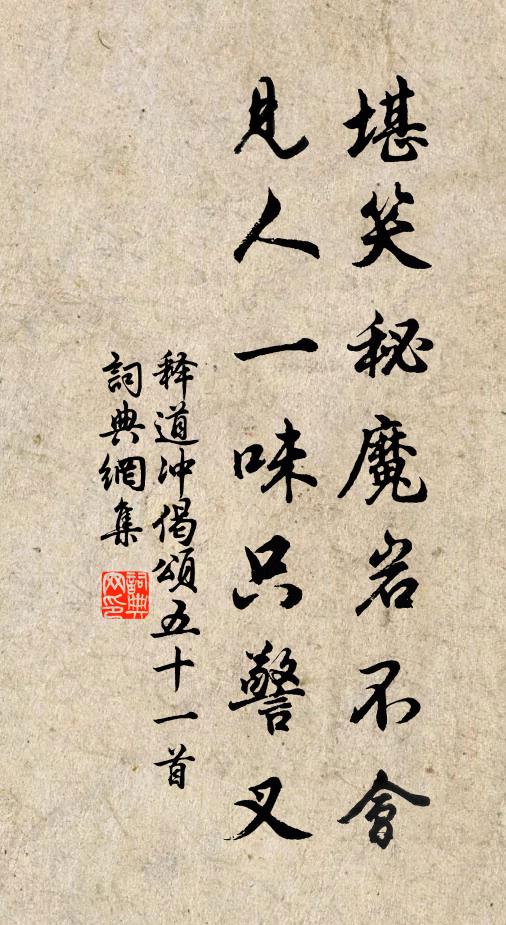 堪笑秘魔岩不會
見人一味只警叉
释道冲偈頌五十一首
詞典網集
詞典網印